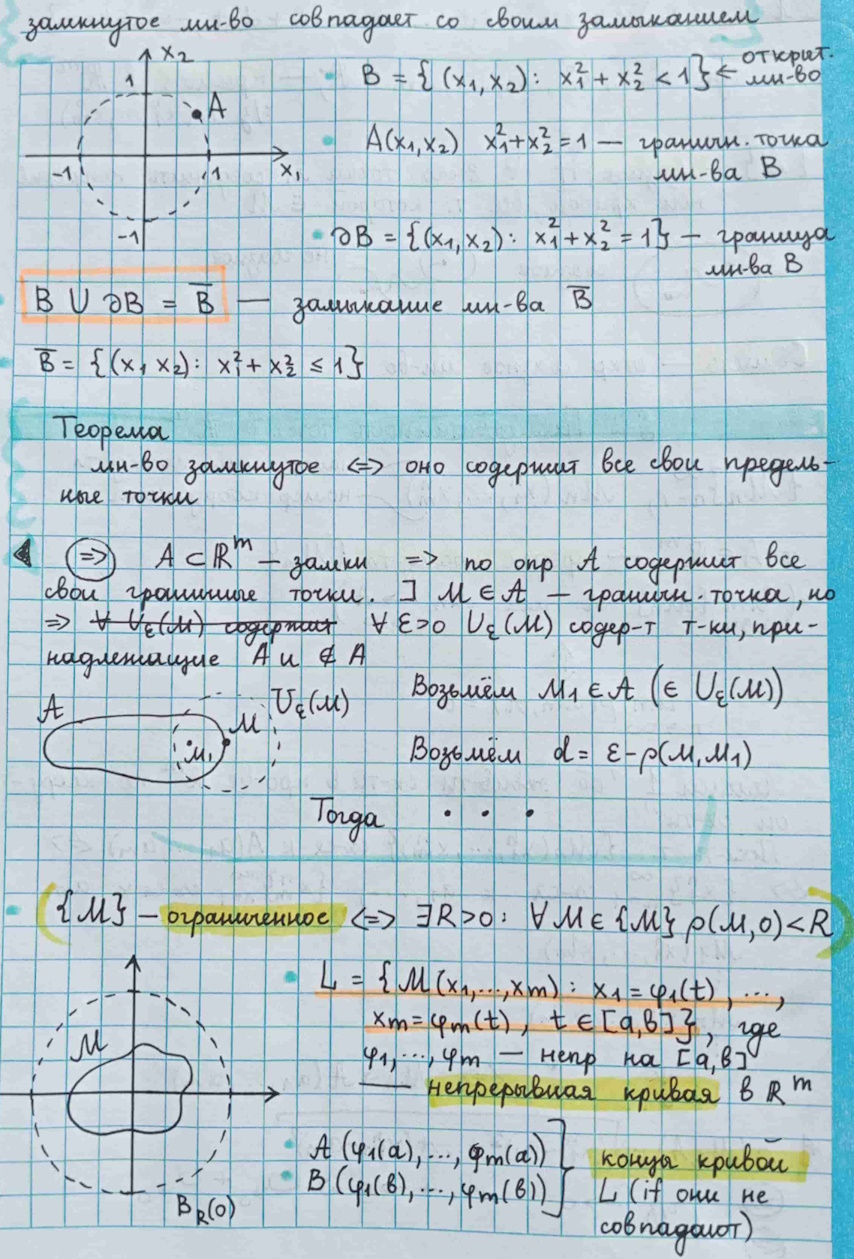 замкнутое мн-во совпадает со своим замыканием
x₂
1
A
-1
1
x₁
-1
B = { (x₁, x₂): x₁² + x₂² < 1} ← открыт. мн-во
A(x₁, x₂) x₁² + x₂² = 1 — граничн. точка
мн-ва B
∂B = {(x₁, x₂): x₁² + x₂² = 1} — граница
мн-ва B
B ∪ ∂B = B̅ — замыкание мн-ва B̅
B̅ = {(x₁ x₂): x₁² + x₂² ≤ 1}
Теорема
мн-во замкнутое <=> оно содержит все свои предель-
ные точки
(=>) A ⊂ ℝᵐ – замкн => по опр A содержит все
свои граничные точки. ] M ∈ A – граничн. точка, но
=> ∀ Uε(M) содержит ∀ ε>0 Uε(M) содер-т т-ки, при-
надлежащие A и ∉ A
A
M₁
M
Uε(M)
Возьмём M₁ ∈ A (∈ Uε(M))
Возьмём d = ε – ρ(M, M₁)
Тогда . . .
({M} – ограниченное <=> ∃R>0: ∀M ∈ {M} ρ(M,0) < R)
M
B_R(0)
L = { M(x₁,...,xₘ): x₁ = φ₁(t), ...,
xₘ = φₘ(t), t ∈ [a,в]}, где
φ₁,...,φₘ — непр на [a,в]
— непрерывная кривая в ℝᵐ
A (φ₁(a),...,φₘ(a))
B (φ₁(в),...,φₘ(в))
концы кривой
L (if они не
совпадают)